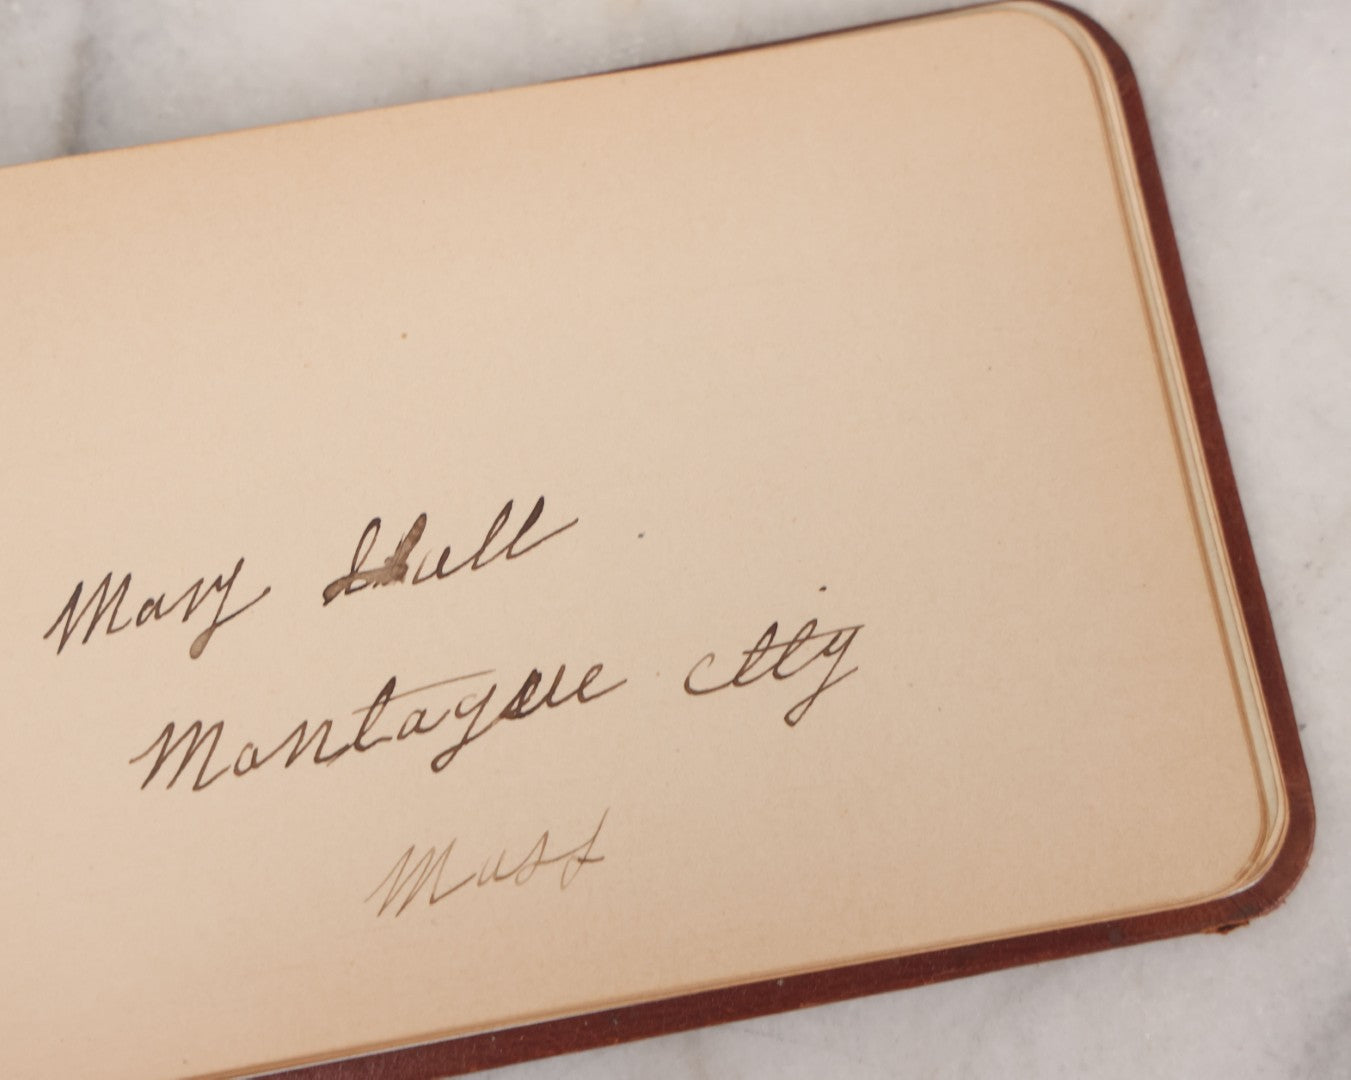 Mary Hall
Montague City
Mass